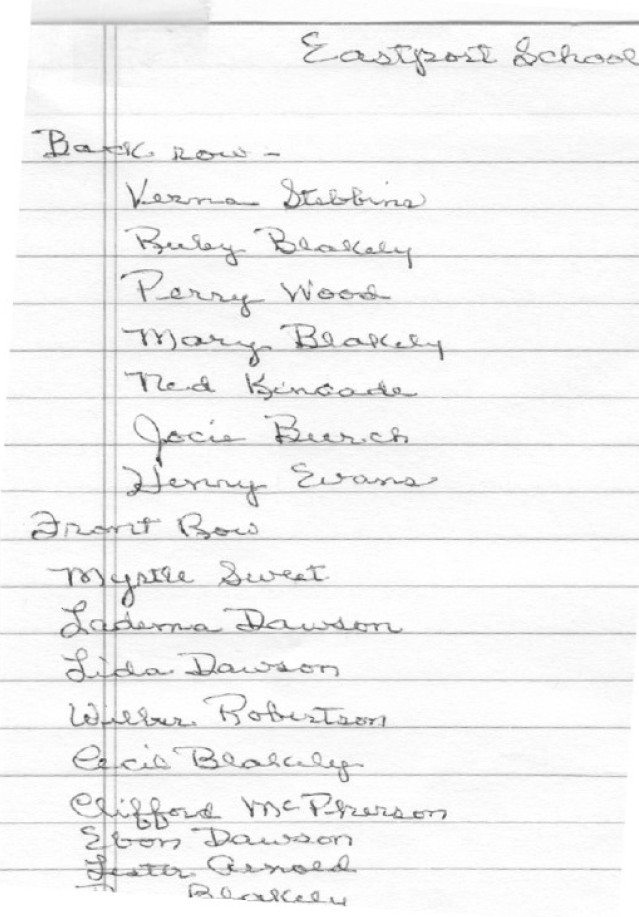 Eastport School
Back row -
Verma Stebbins
Ruby Blakely
Perry Wood
Mary Blakely
Ned Kincade
Jocie Burch
Henry Evans
Front Row
Myrtle Sweet
Laderna Dawson
Lida Dawson
Wilber Robertson
Cecil Blakely
Clifford McPherson
Ebon Dawson
Lester Arnold
Blakely